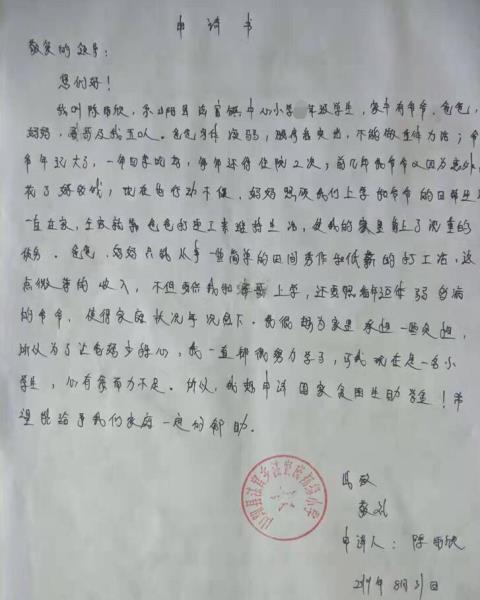 申请书
敬爱的领导：
您们好！
我叫陈雨欣，系山阳县法官镇中心小学 年级学生，家中有爷爷，爸爸，
妈妈，哥哥及我五人。爸爸身体 弱，腰椎 突出，不能做重体力活；爷
爷年纪大了，一年四季吃药，每年还得住院2次；前几年 爷爷又因为意外，
花了好多钱，现在也行动不便，妈妈照顾我们上学和爷爷的日常生
一直在家，全家就靠爸爸打零工来维持生活，使我的家里背上了沉重的
债务。爸爸、妈妈只能从事一些简单的田间劳作和低薪的打工活，这
点微薄的收入，不但要供我和哥哥上学，还要照看年迈体弱多病
的爷爷，使得家庭状况每况愈下。我很想为家里承担一些负担，
所以为了让爸妈少操心，我一直都很努力学习，可我现在是一名小
学生，心有余而力不足。所以，我想申请国家贫困生助学金！希
望能给予我们家庭一定的帮助。
此致
敬礼
申请人：陈雨欣
2019年8月31日